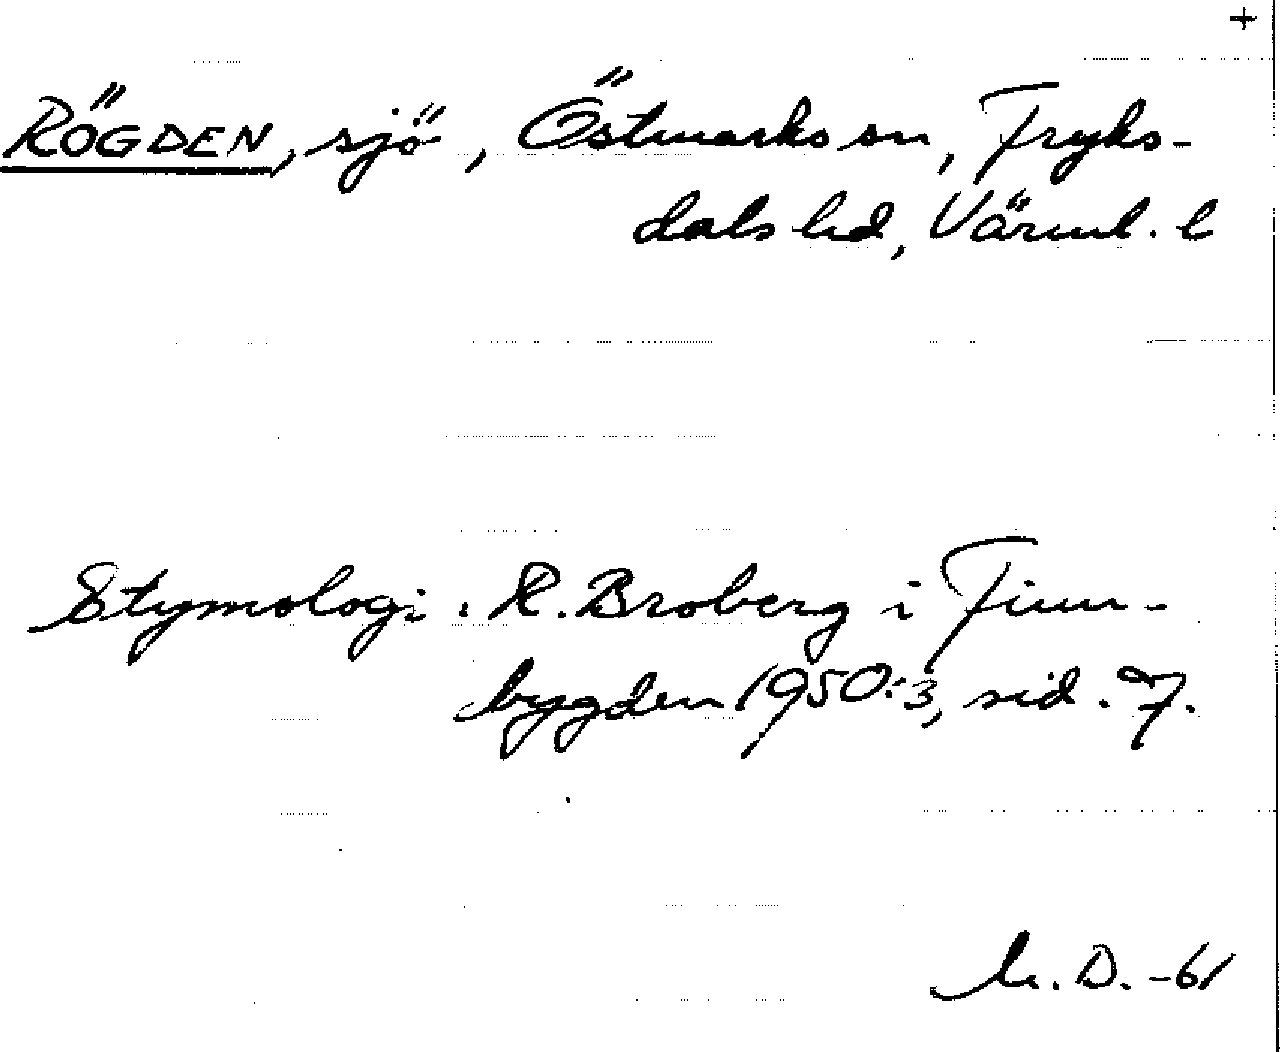 +
RÖGDEN, sjö, Östmarks sn, Fryks-
dals hd, Värml. l
Etymologi. R. Broberg i Finn-
bygden 1950:3, sid. 7.
D. -61